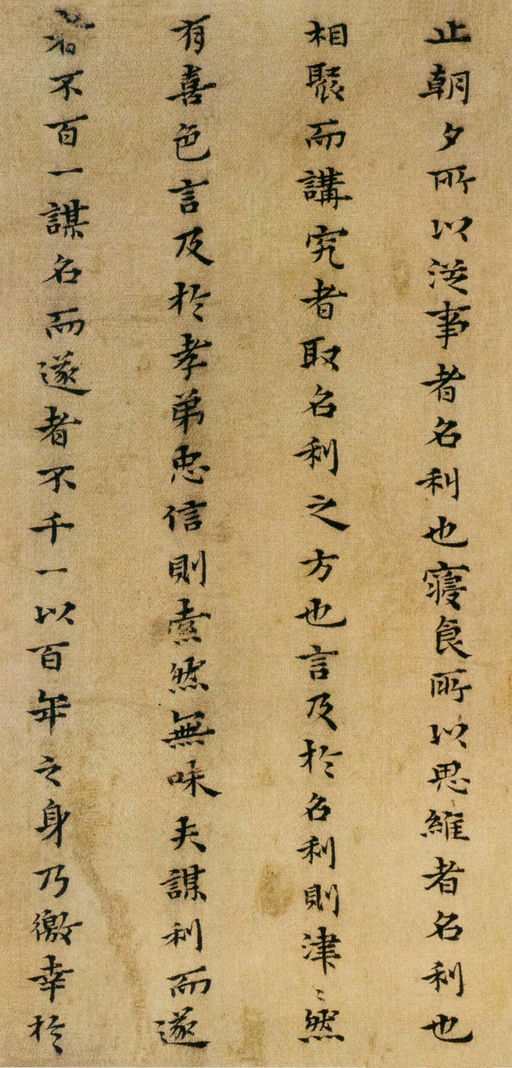 止朝夕所以從事者名利也寢食所以思維者名利也
相聚而講究者取名利之方也言及於名利則津〻然
有喜色言及於孝弟忠信則索然無味夫謀利而遂
者不百一謀名而遂者不千一以百年之身乃徼幸於